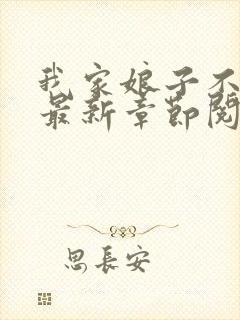 我家娘子不
最新章节阅
思長安